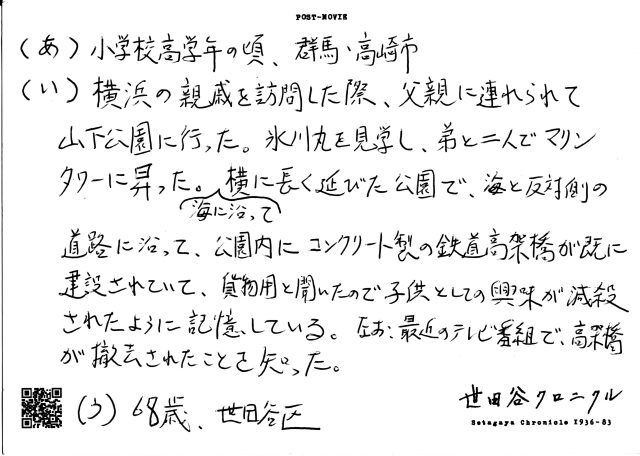 POST-MOVIE
(あ) 小学校高学年の頃、群馬・高崎市
(い) 横浜の親戚を訪問した際、父親に連れられて
山下公園に行った。氷川丸を見学し、弟と二人でマリン
タワーに昇った。横に長く延びた公園で、海と反対側の
海に沿って
道路に沿って、公園内にコンクリート製の鉄道高架橋が既に
建設されていて、貨物用と聞いたので子供としての興味が減殺
されたように記憶している。なお、最近のテレビ番組で、高架橋
が撤去されたことを知った。
(う) 68歳、世田谷区
世田谷クロニクル
Setagaya Chronicle 1936-83